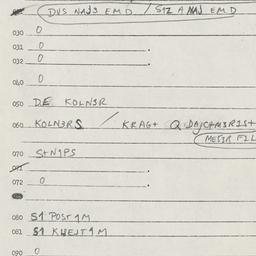 DUS NAJ3 EMD / STZ A NAJ EMD
030 0
031 0
032 0
040 0
050 D.E. KOLN3R
060 KOLN3RS / KRAG+ Q DAJCHM3R1S+
MESTR FZL
070 S+N1PS
071
072 0
080 S1 POST 1M
081 S1 KWEJT 1M
090 0